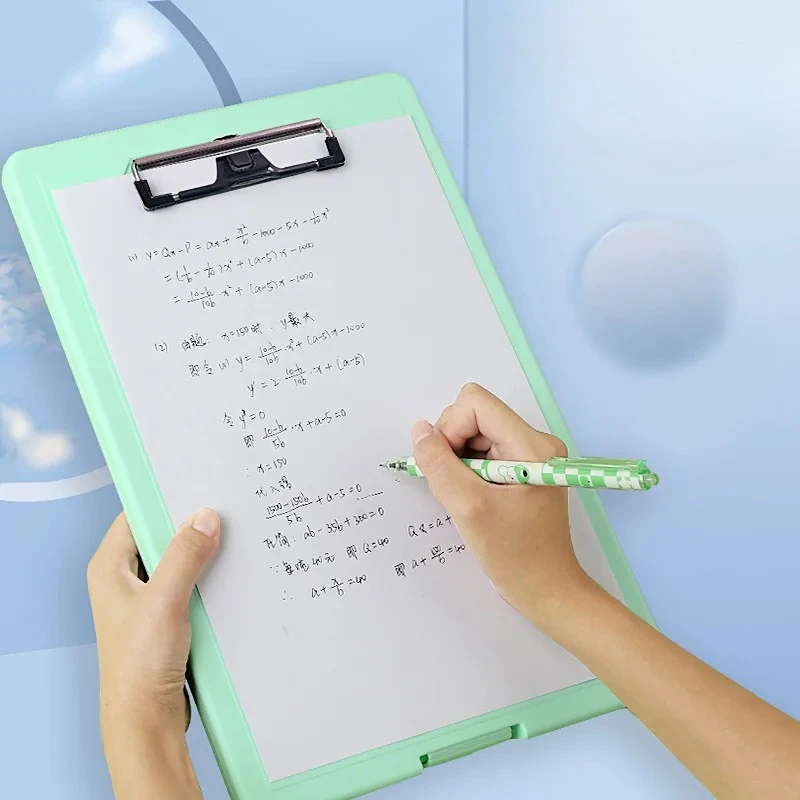 (1) y = Qx - P = ax + x²/b - 1000 - 5x - 1/10 x²
= (1/b - 1/10) x² + (a-5) x - 1000
= (10-b)/10b · x² + (a-5)x - 1000
(2) 由题: x=150时, y最大
即令(1) y = (10-b)/10b · x² + (a-5)x - 1000
y' = 2 · (10-b)/10b · x + (a-5)
令 y' = 0
即 (10-b)/5b · x + a-5 = 0
∵ x = 150
代入得
(1500-150b)/5b + a-5 = 0
化简: ab - 35b + 300 = 0
∵ 每吨40元 即 Q=40 Q = a +
∴ a + x/b = 40 即 a + 150/b = 40